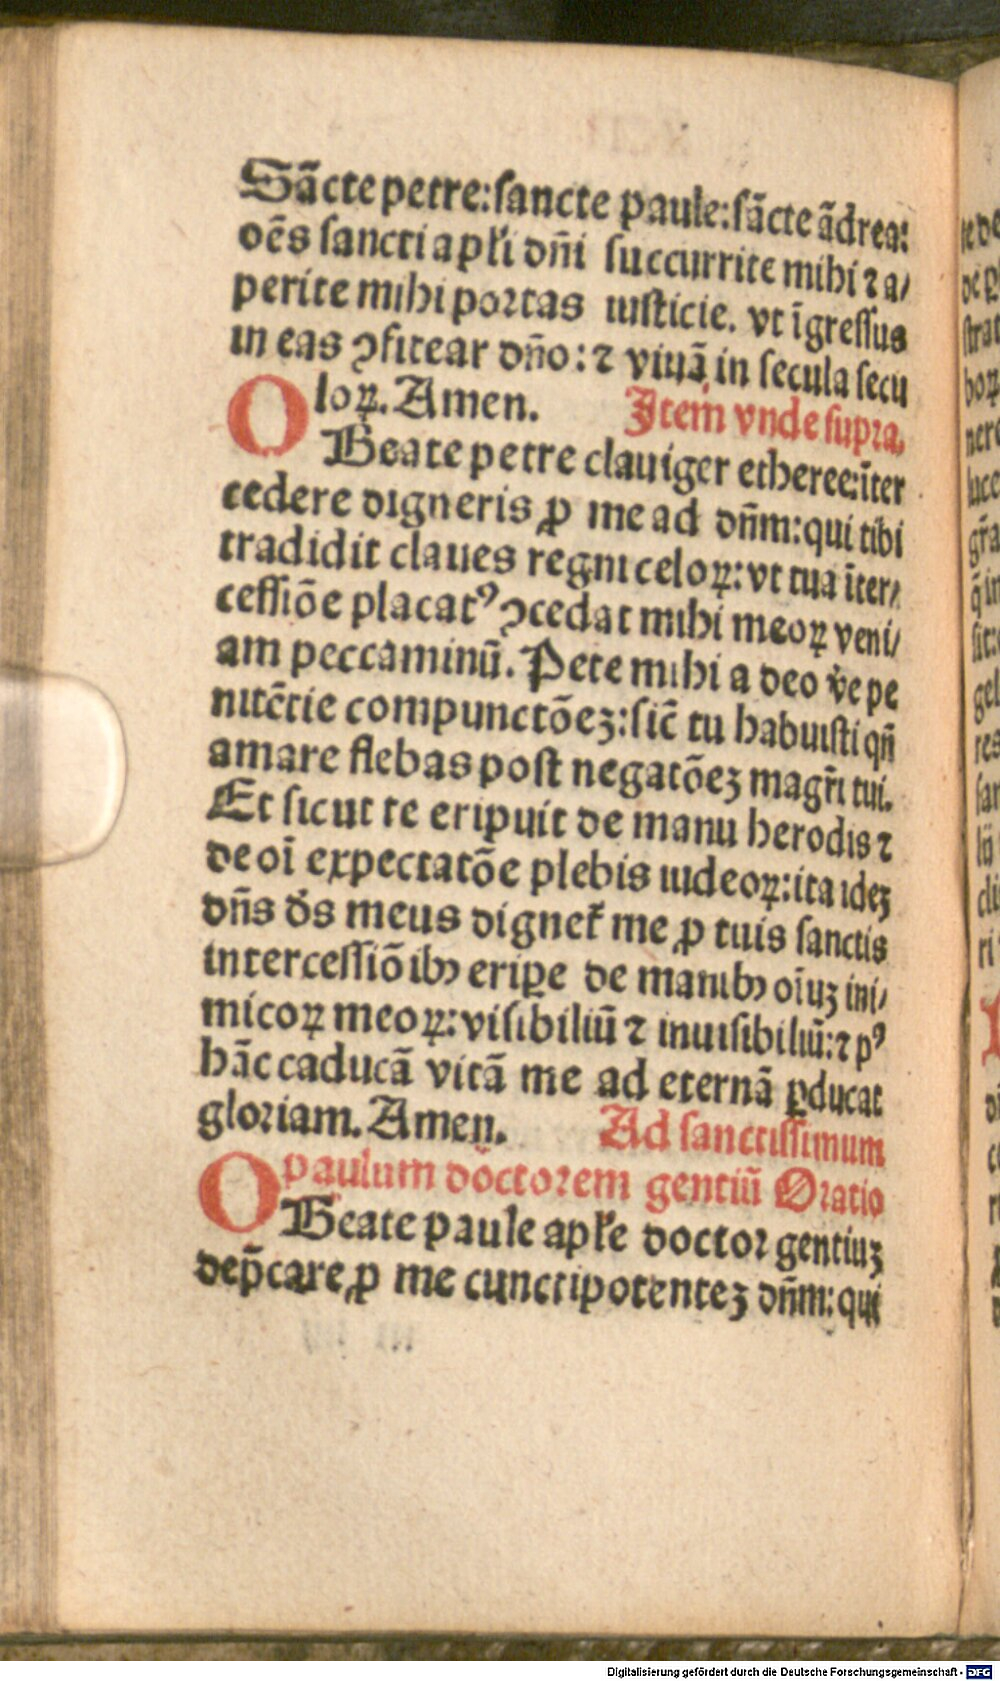 Sācte petre: sancte paule: sācte ādrea:
oēs sancti apłi dn̄i succurrite mihi ⁊ a/
perite mihi portas iusticie. vt īgressus
in eas ꝯfitear dn̄o: ⁊ viuā in secula secu
loꝝ. Amen. Item vnde supra.
O Beate petre clauiger etheree: īter
cedere digneris ꝓ me ad dn̄m: qui tibi
tradidit claues regni celoꝝ: vt tua īter/
cessiōe placatꝰ ꝯcedat mihi meoꝝ veni/
am peccaminū. Pete mihi a deo v̄e pe
nitētie compunctōeꝫ: sic̄ tu habuisti qn̄
amare flebas post negatōeꝫ magr̄i tui.
Et sicut te eripuit de manu herodis ⁊
de oī expectatōe plebis iudeoꝝ: ita ideꝫ
dn̄s ds̄ meus dignet᷑ me ꝓ tuis sanctis
intercessiōibꝰ eriꝑe de manibꝰ oīuꝫ ini/
micoꝝ meoꝝ: visibiliū ⁊ inuisibiliū: ⁊ pꝰ
hāc caducā vitā me ad eternā ꝑducat
gloriam. Amen. Ad sanctissimum
paulum doctorem gentiū Oratio
O Beate paule apłe doctor gentiuꝫ
dep̄care ꝓ me cunctipotenteꝫ dn̄m: qui
Digitalisierung gefördert durch die Deutsche Forschungsgemeinschaft - DFG